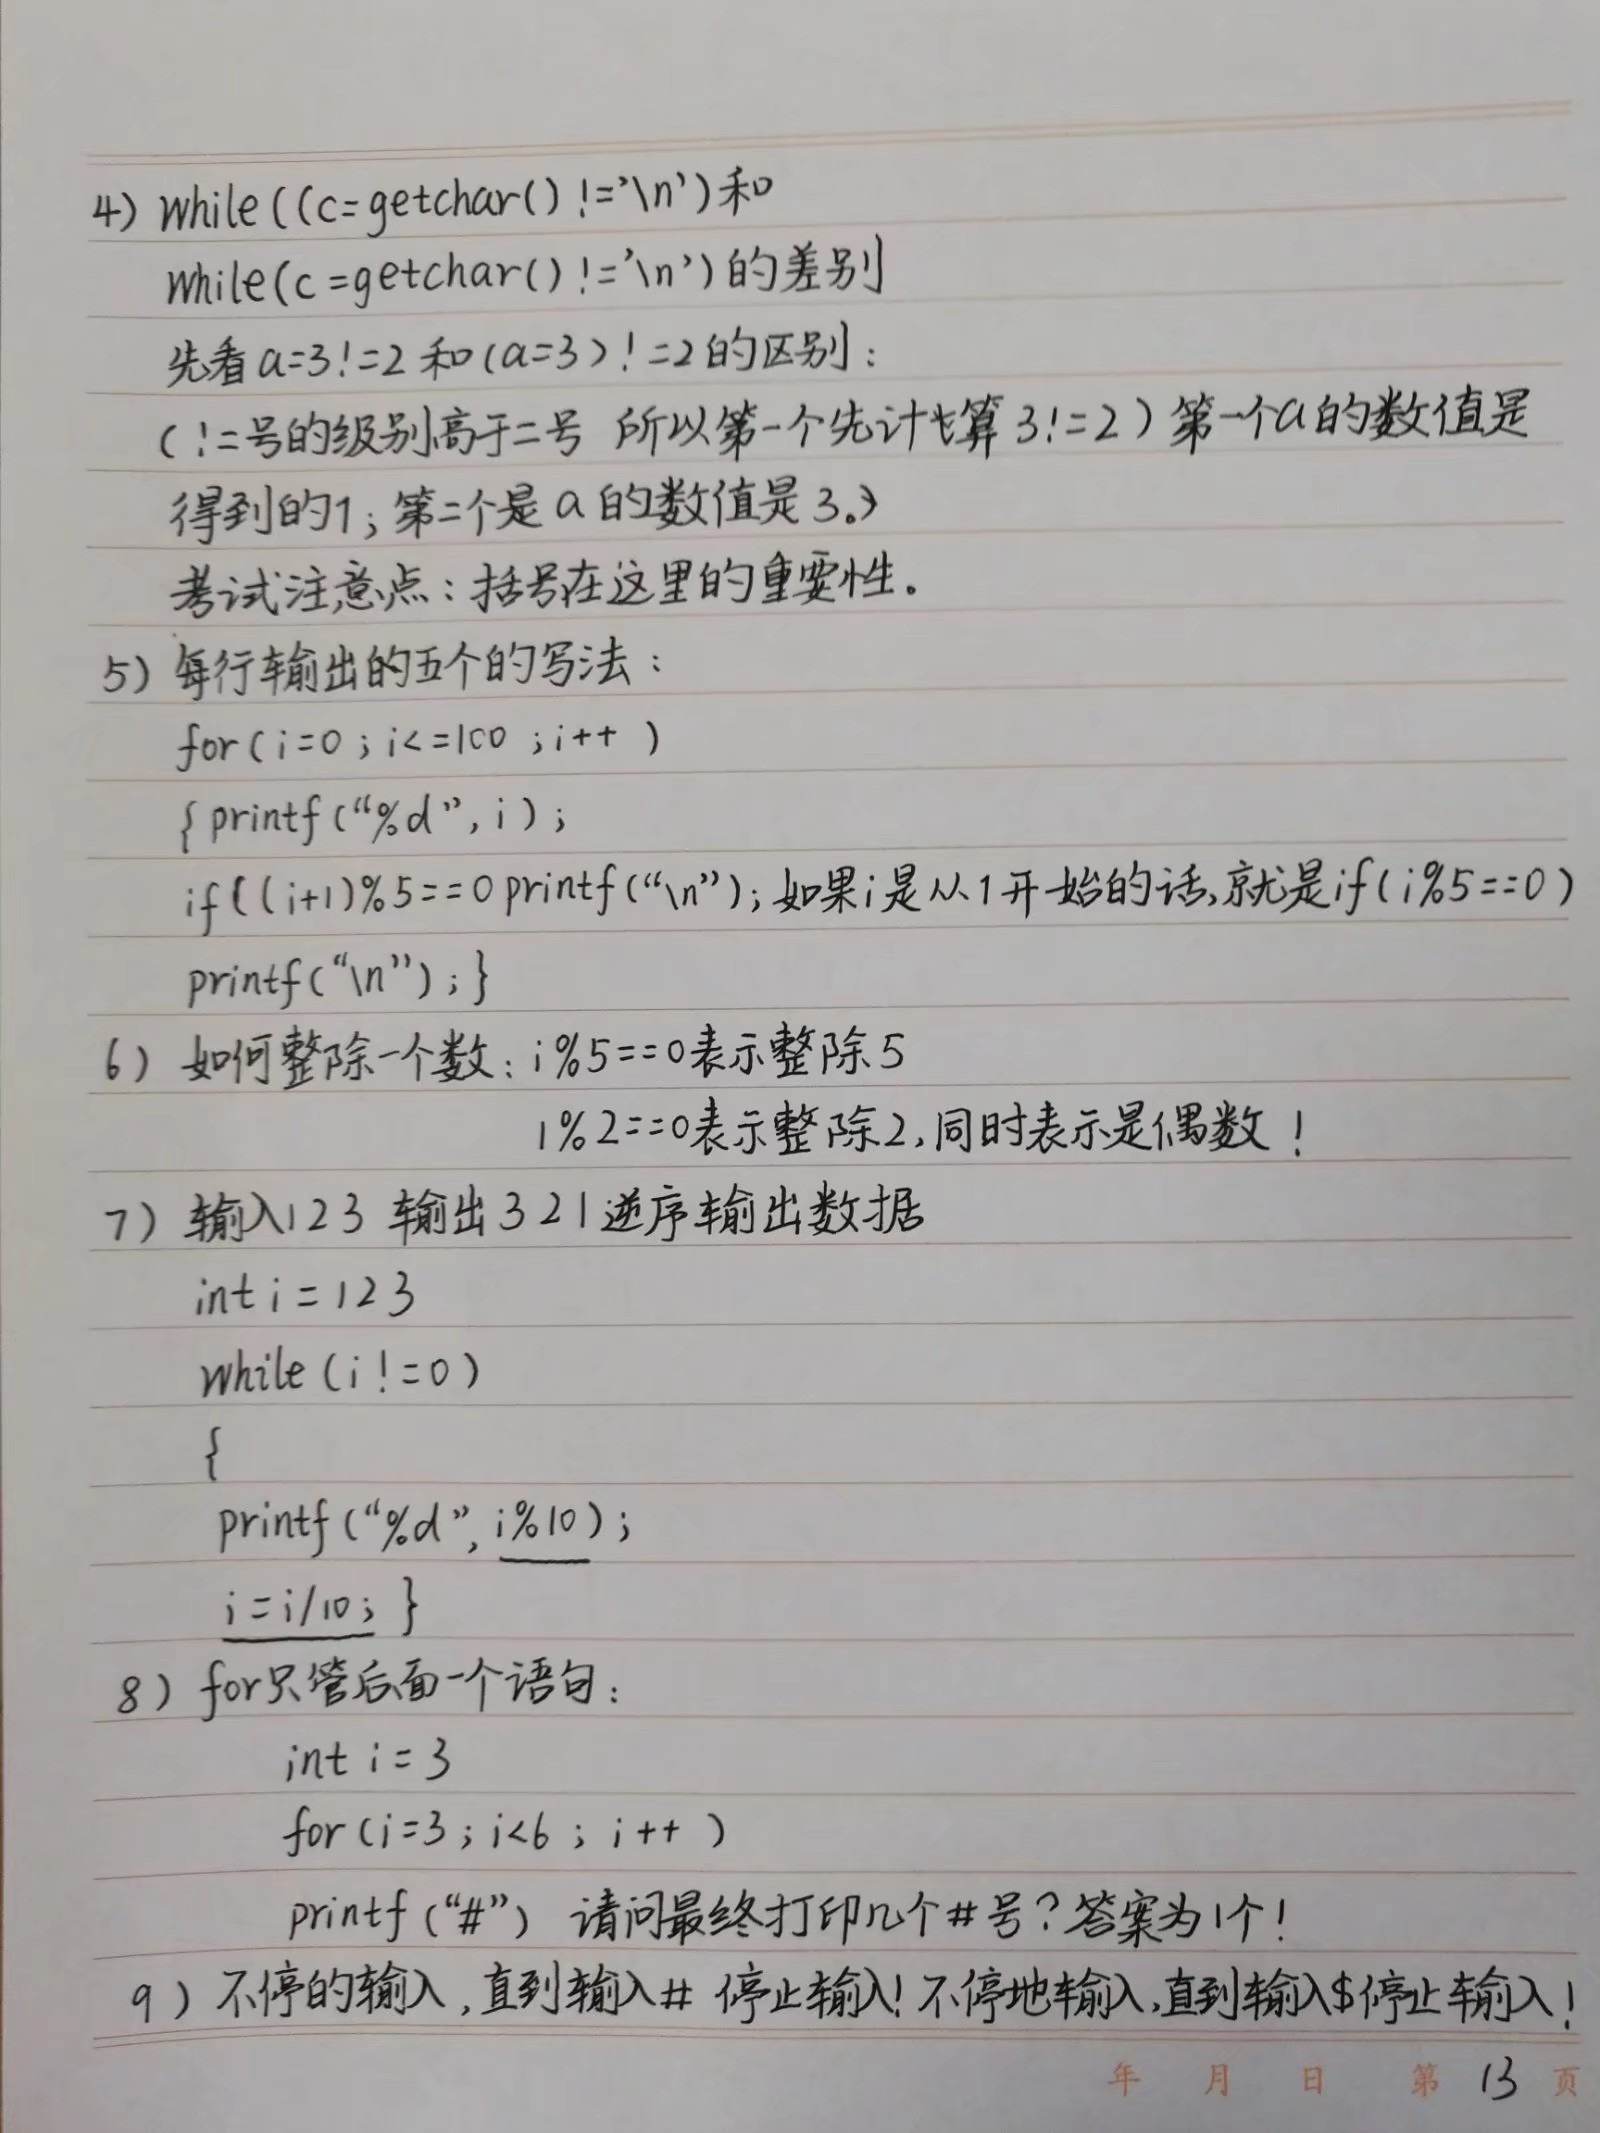 4) while((c=getchar() !='\n')和
while(c=getchar() !='\n')的差别
先看a=3!=2和(a=3)!=2的区别:
(!=号的级别高于=号 所以第一个先计算3!=2)第一个a的数值是
得到的1;第二个是a的数值是3。)
考试注意点:括号在这里的重要性。
5) 每行输出的五个的写法:
for(i=0;i<=100;i++)
{printf("%d",i);
if((i+1)%5==0printf("\n");如果i是从1开始的话,就是if(i%5==0)
printf("\n");}
6) 如何整除一个数:i%5==0表示整除5
i%2==0表示整除2,同时表示是偶数!
7) 输入123 输出321逆序输出数据
int i=123
while(i!=0)
{
printf("%d",i%10);
i=i/10;}
8) for只管后面一个语句:
int i=3
for(i=3;i<6;i++)
printf("#") 请问最终打印几个#号?答案为1个!
9) 不停的输入,直到输入# 停止输入!不停地输入,直到输入$停止输入!
年 月 日 第 13 页